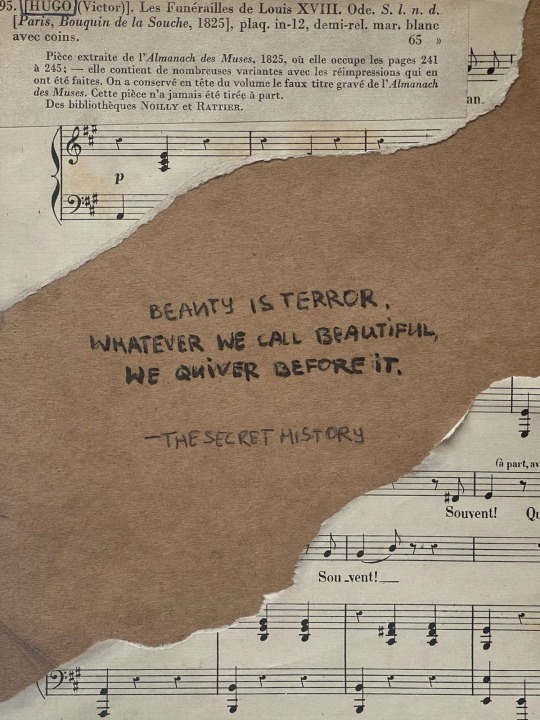 95. [HUGO (Victor)]. Les Funérailles de Louis XVIII. Ode. S. l. n. d.
[Paris, Bouquin de la Souche, 1825], plaq. in-12, demi-rel. mar. blanc
avec coins. 65 »
Pièce extraite de l'Almanach des Muses, 1825, où elle occupe les pages 241
à 245; — elle contient de nombreuses variantes avec les réimpressions qui en
ont été faites. On a conservé en tête du volume le faux titre gravé de l'Almanach
des Muses. Cette pièce n'a jamais été tirée à part.
Des bibliothèques NOILLY et RATTIER.
an.
p
BEAUTY IS TERROR.
WHATEVER WE CALL BEAUTIFUL,
WE QUIVER BEFORE IT.
—THE SECRET HISTORY
(à part, av
Souvent! Qu
Sou-vent!